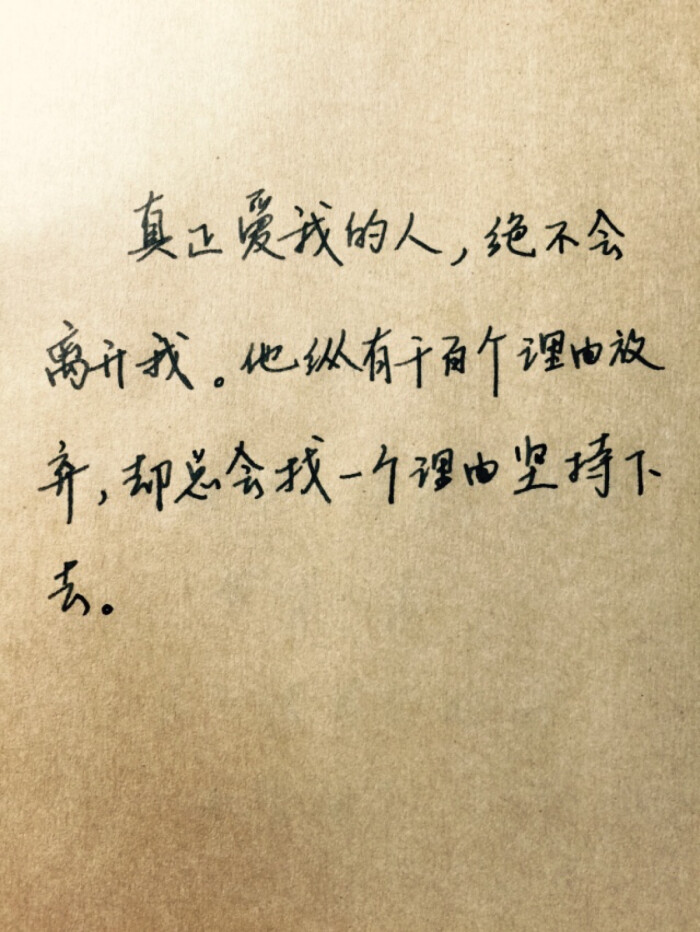 真正爱我的人,绝不会
离开我。他纵有千百个理由放
弃,却总会找一个理由坚持下
去。